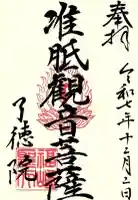 奉拝
令和二年十二月二日
准胝観音菩薩
了徳院